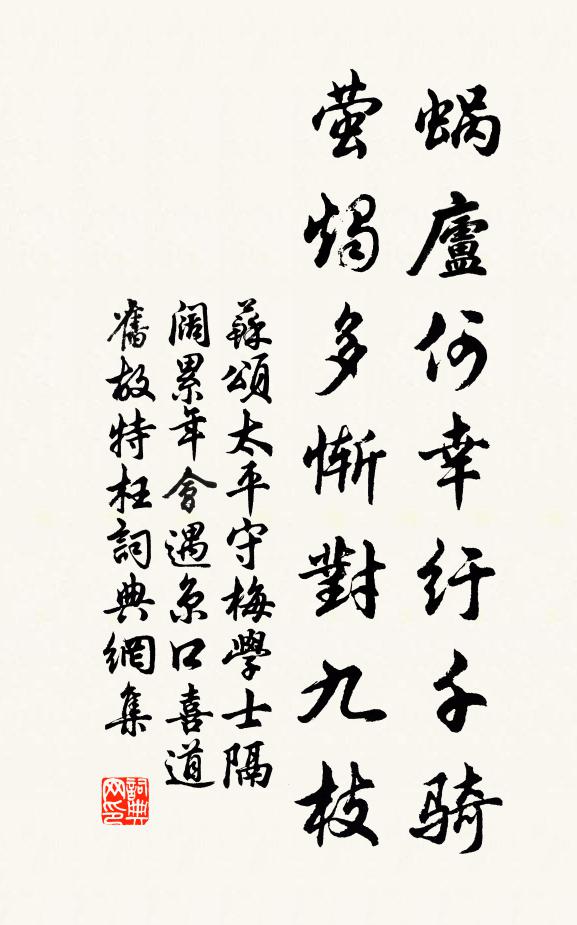 蜗廬何幸紆千骑
萤燭多惭對九枝
蘇頌太平守梅學士隔
阔累年會遇京口喜道
舊故特枉詞典網集
詞典网印